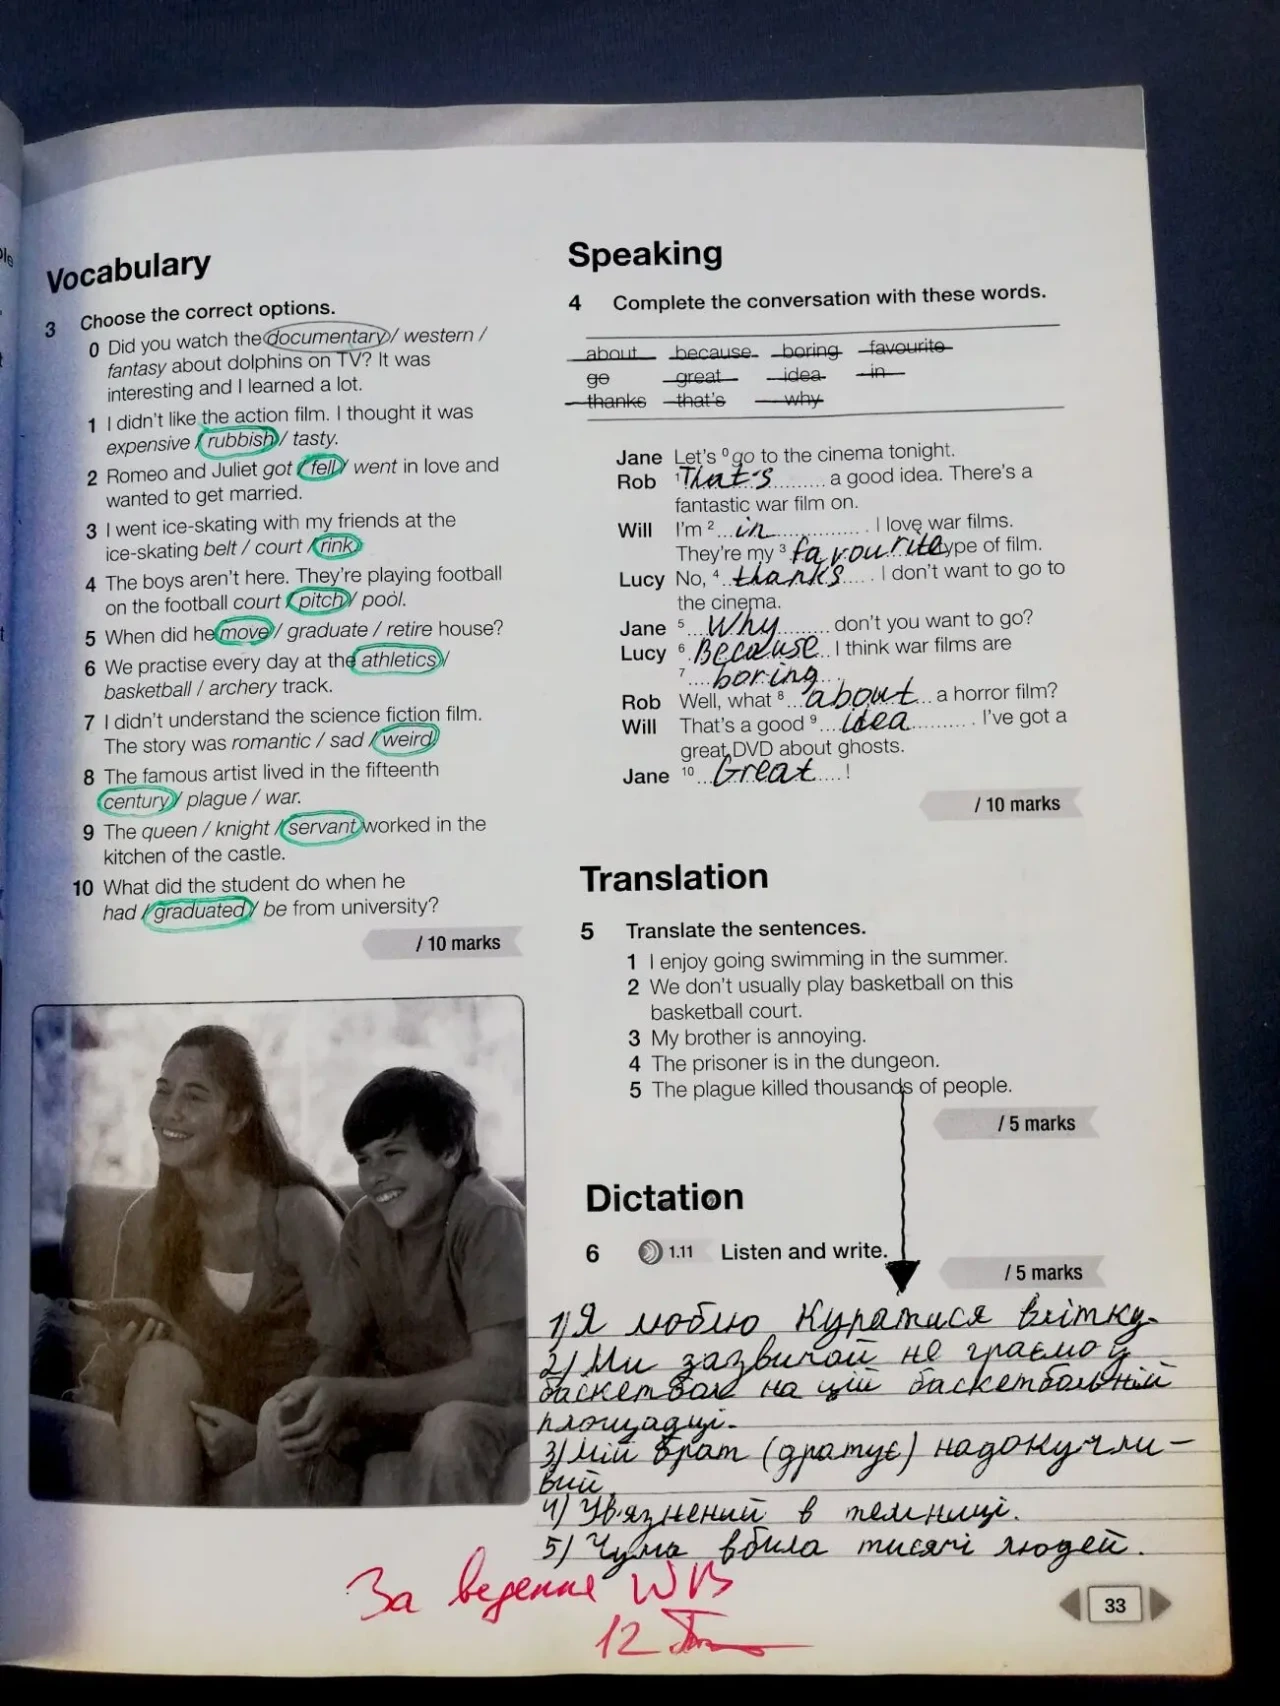 Vocabulary
3 Choose the correct options.
0 Did you watch the documentary / western /
fantasy about dolphins on TV? It was
interesting and I learned a lot.
1 I didn't like the action film. I thought it was
expensive / rubbish / tasty.
2 Romeo and Juliet got / fell / went in love and
wanted to get married.
3 I went ice-skating with my friends at the
ice-skating belt / court / rink.
4 The boys aren't here. They're playing football
on the football court / pitch / pool.
5 When did he move / graduate / retire house?
6 We practise every day at the athletics /
basketball / archery track.
7 I didn't understand the science fiction film.
The story was romantic / sad / weird.
8 The famous artist lived in the fifteenth
century / plague / war.
9 The queen / knight / servant worked in the
kitchen of the castle.
10 What did the student do when he
had / graduated / be from university?
/ 10 marks
Speaking
4 Complete the conversation with these words.
about because boring favourite
go great idea in
thanks that's why
Jane Let's 0 go to the cinema tonight.
Rob 1 That's a good idea. There's a
fantastic war film on.
Will I'm 2 in . I love war films.
They're my 3 favourite type of film.
Lucy No, 4 thanks . I don't want to go to
the cinema.
Jane 5 Why don't you want to go?
Lucy 6 Because I think war films are
7 boring .
Rob Well, what 8 about a horror film?
Will That's a good 9 idea . I've got a
great DVD about ghosts.
Jane 10 Great !
/ 10 marks
Translation
5 Translate the sentences.
1 I enjoy going swimming in the summer.
2 We don't usually play basketball on this
basketball court.
3 My brother is annoying.
4 The prisoner is in the dungeon.
5 The plague killed thousands of people.
/ 5 marks
Dictation
6 1.11 Listen and write.
/ 5 marks
1) Я люблю купатися влітку.
2) Ми зазвичай не граємо у
баскетбол на цій баскетбольній
площадці.
3) Мій брат (дратує) надокучли-
вий.
4) Ув'язнений в темниці.
5) Чума вбила тисячі людей.
За ведення WB
12
33